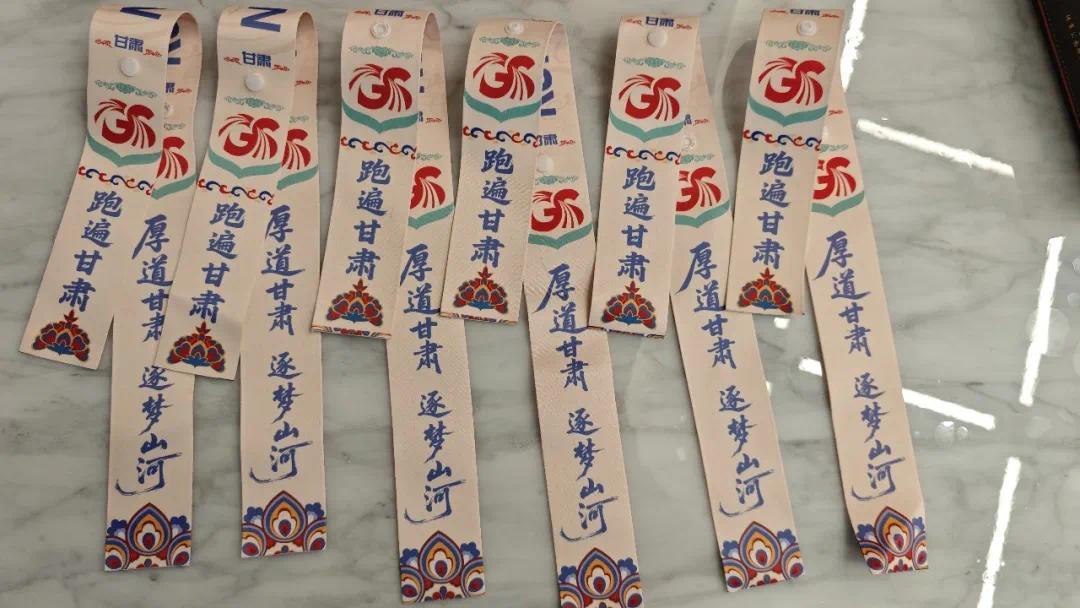 甘肃
GS
跑遍甘肃
厚道甘肃 逐梦山河
甘肃
GS
跑遍甘肃
厚道甘肃 逐梦山河
GS
跑遍甘肃
厚道甘肃 逐梦山河
GS
跑遍甘肃
甘肃
GS
厚道甘肃 逐梦山河
甘肃
GS
跑遍甘肃
GS
厚道甘肃 逐梦山河
GS
跑遍甘肃
GS
厚道甘肃 逐梦山河